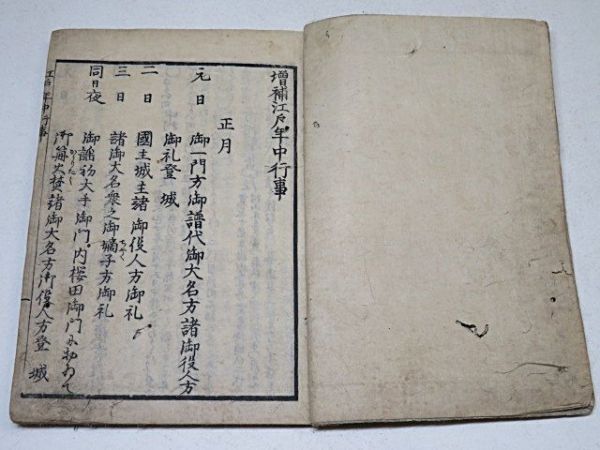 增補江戸年中行事
正月
元日 御一門方御譜代御大名方諸御役人方
御礼登城
二日 國主城主諸御役人方御礼
三日 諸御大名衆之御嫡子方御礼
同日夜 御謡初大手御門内桜田御門
御篝火焚諸御大名方御役人方登城
江戸年中行事